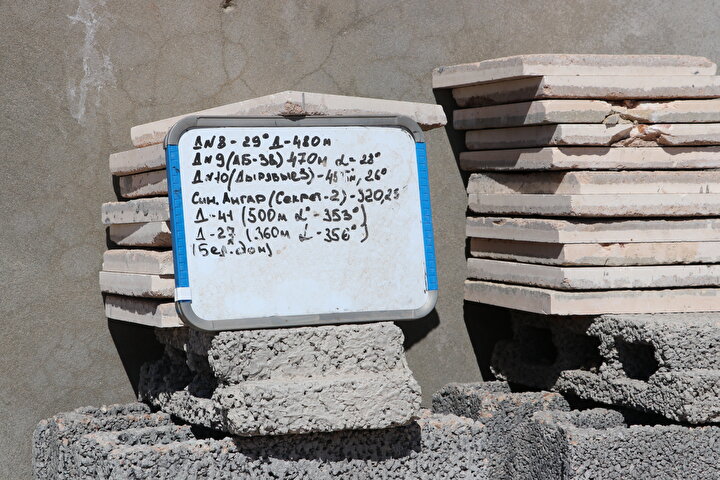 Д№8 - 29° Д-480м
Д№9 (ДБ-ЗВ) 470м α = 28°
Д№10 (Дырявые3) - 45 м, 26°
Син. Ангар (Секрет-2) - 320, 25°
Д - 41 (500м α° - 353°)
Д - 27 (360м α - 356°)
(Бел. дом)